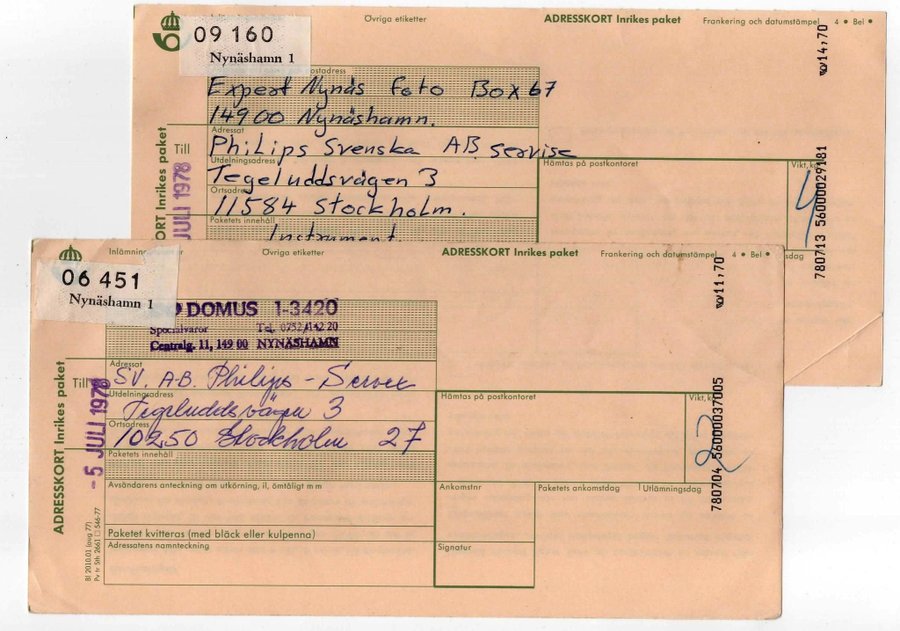 Övriga etiketter
ADRESSKORT Inrikes paket
Frankering och datumstämpel 4 • Bel •
09 160
Nynäshamn 1
postadress
Expert Nynäs Foto Box 67
14900 Nynäshamn.
Adressat
Till
Philips Svenska AB Servise
Utdelningsadress
Tegeluddsvägen 3
Ortsadress
11584 Stockholm.
Paketets innehåll
Instrument
Hämtas på postkontoret
Vikt, kg
4
sdag
ORT Inrikes paket
JULI 1978
14,70
780713 56000029181
Inlämnin
Övriga etiketter
ADRESSKORT Inrikes paket
Frankering och datumstämpel 4 • Bel •
06 451
Nynäshamn 1
DOMUS 1-3420
Specialvaror Tel. 0752/142 20
Centralg. 11, 149 00 NYNÄSHAMN
Adressat
Till
SV. A.B. Philips - Service
Utdelningsadress
Tegeluddsvägen 3
Ortsadress
10250 Stockholm 27
Paketets innehåll
Avsändarens anteckning om utkörning, il, ömtåligt m m
Paketet kvitteras (med bläck eller kulpenna)
Adressatens namnteckning
Hämtas på postkontoret
Vikt, kg
2
Ankomstnr
Paketets ankomstdag
Utlämningsdag
Signatur
ADRESSKORT Inrikes paket
- 5 JULI 1978
Bl 2010.01 (aug 77)
Pv tr Sth 2661 □ 546-77
11,70
780704 56000037005